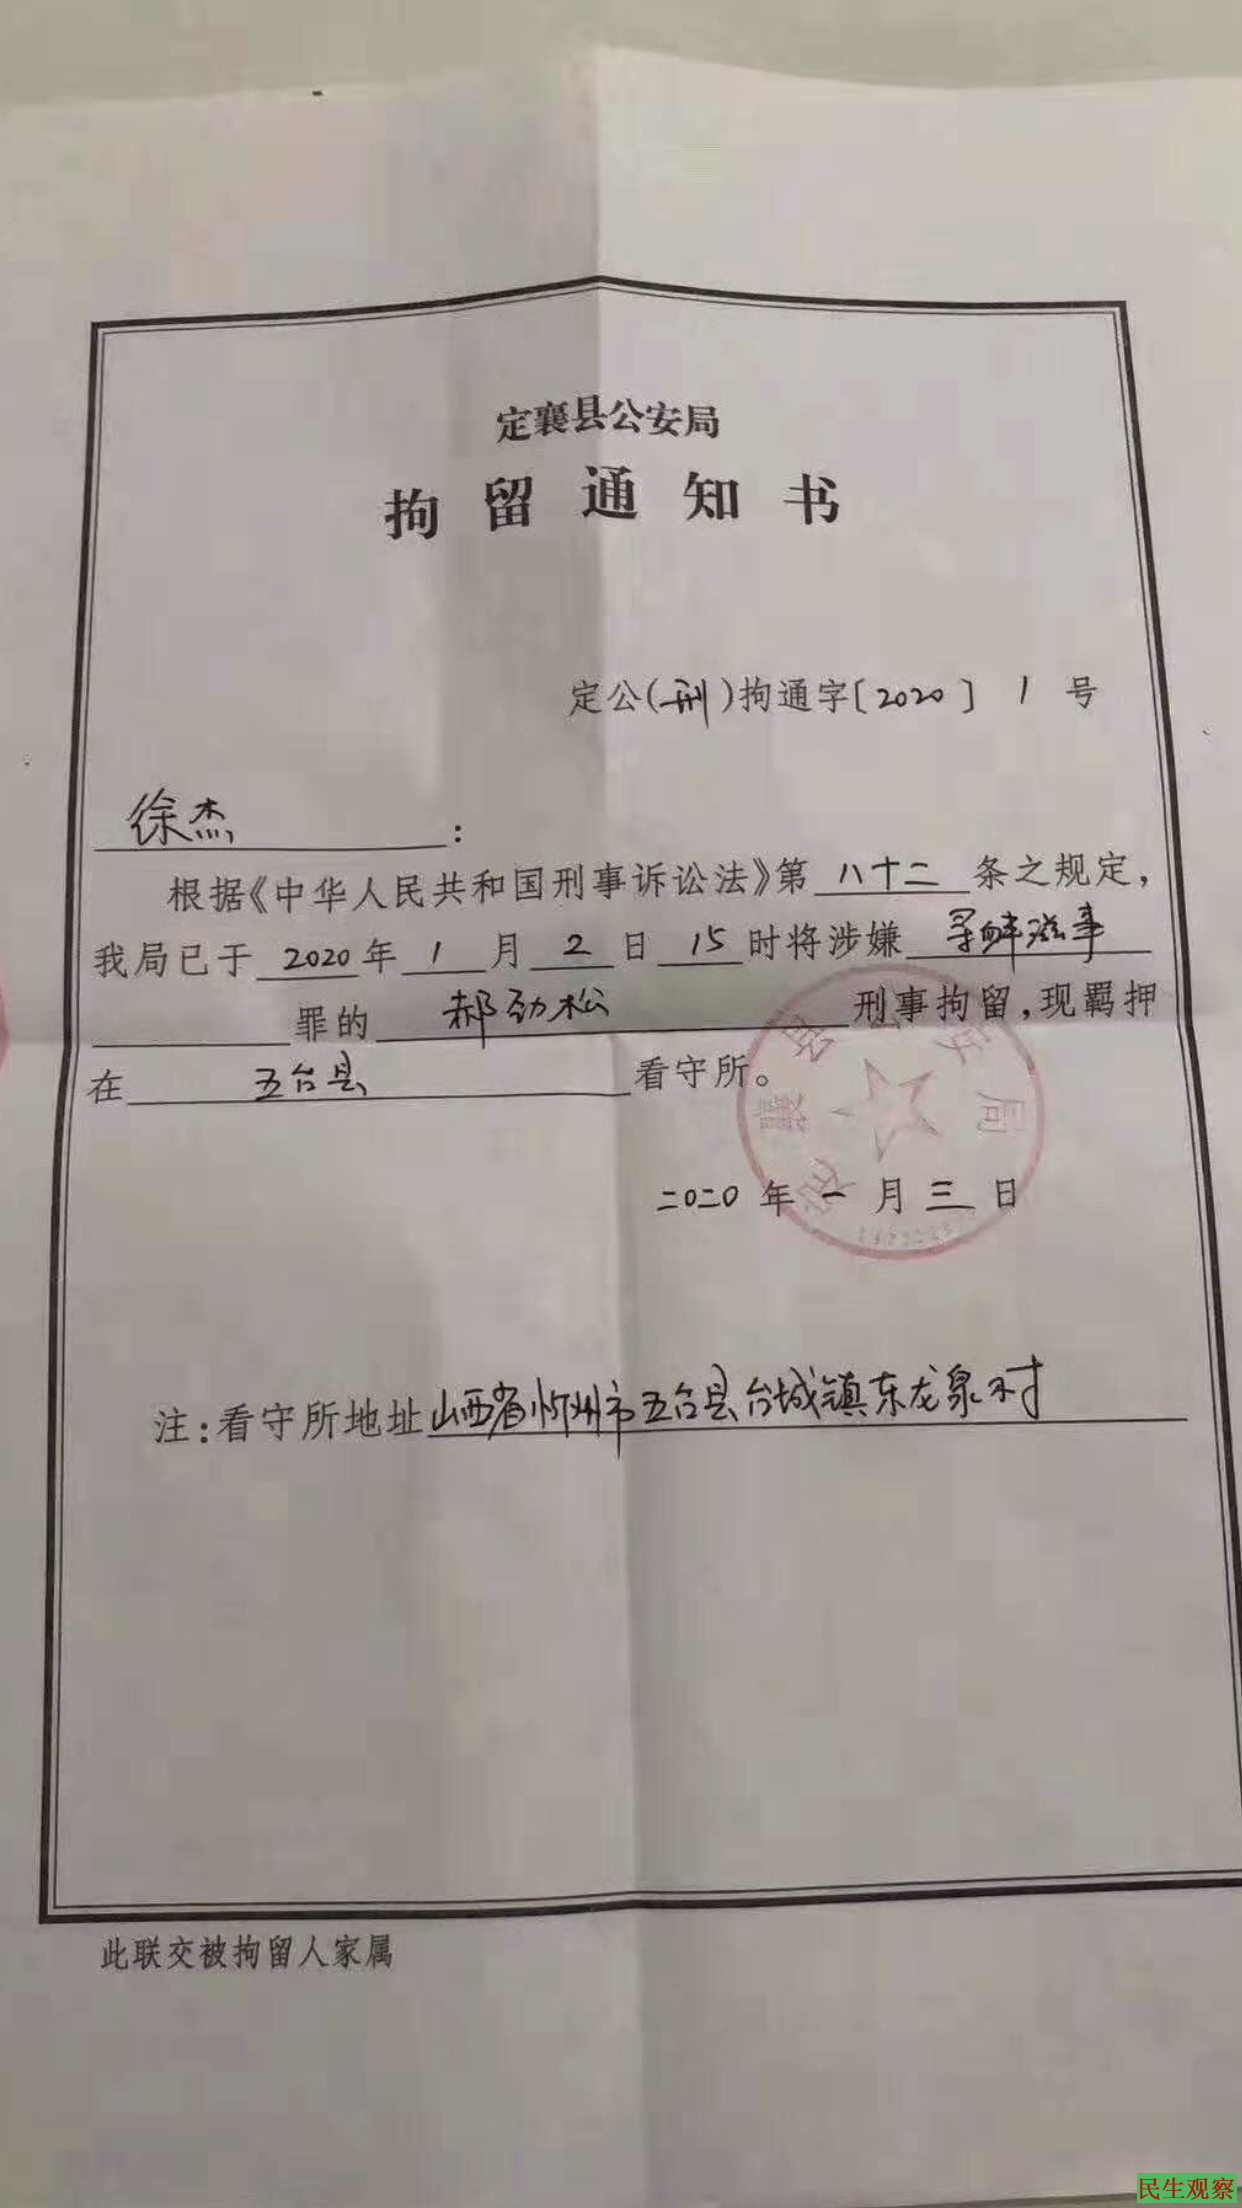 定襄县公安局
拘留通知书
定公(刑)拘通字[2020] 1 号
徐杰:
根据《中华人民共和国刑事诉讼法》第八十二条之规定,
我局已于2020年1月2日15时将涉嫌寻衅滋事
罪的郝劲松刑事拘留,现羁押
在五台县看守所。
二〇二〇年一月三日
注:看守所地址山西省忻州市五台县台城镇东龙泉村
此联交被拘留人家属
民生观察